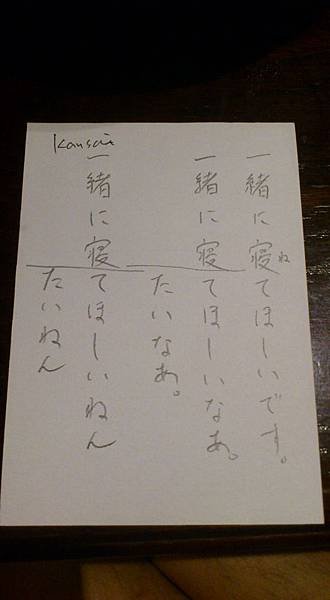 一緒に寝てほしいです。
ね
一緒に寝てほしいなあ。
たいなあ。
Kansai
一緒に寝てほしいねん
たいねん